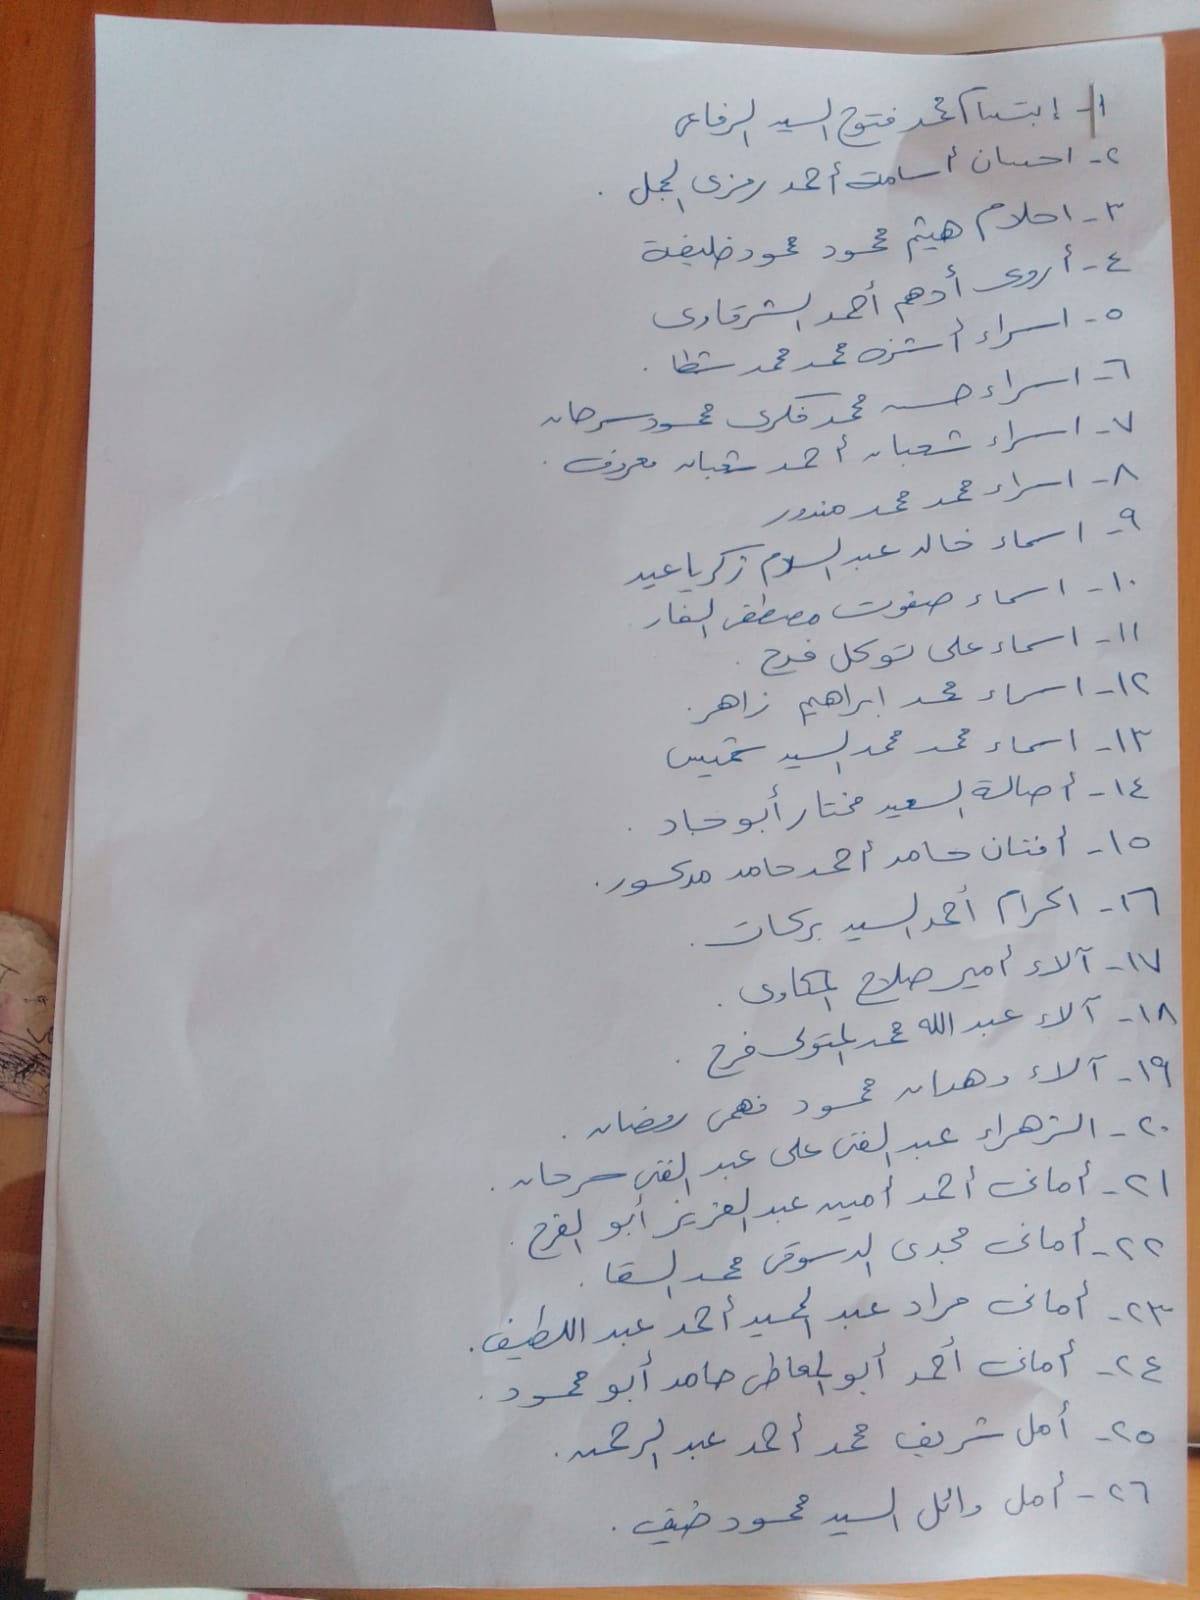 ١- إبتسام محمد فتوح السيد الرفاعى
٢- احسان أسامة أحمد رمزى الجمل .
٣- احلام هيثم محمود محمود خليفة
٤- أروى أدهم أحمد الشرقاوى
٥- اسراء أشرف محمد محمد شطا .
٦- اسراء حسن محمد فكرى محمود سرحان
٧- اسراء شعبان أحمد شعبان معروف .
٨- اسراء محمد محمد مندور
٩- اسماء خالد عبد السلام زكريا عيد
١٠- اسماء صفوت مصطفى الفار
١١- اسماء على توكل فرج .
١٢- اسماء محمد ابراهيم زاهر .
١٣- اسماء محمد محمد السيد خميس
١٤- أصالة السعيد مختار أبو حماد .
١٥- أفنان حامد أحمد حامد مدكور .
١٦- اكرام أحمد السيد بركات .
١٧- آلاء أمير صلاح المكاوى .
١٨- آلاء عبد الله محمد المتولى فرج .
١٩- آلاء وهدان محمود فهمى رمضان .
٢٠- الزهراء عبد الغنى على عبد الغنى سرحان .
٢١- أمانى أحمد أمين عبد العزيز أبو الفرج .
٢٢- أمانى مجدى الدسوقى محمد السقا .
٢٣- أمانى مراد عبد الحميد أحمد عبد اللطيف .
٢٤- أمانى أحمد أبو المعاطى حامد أبو محمود .
٢٥- أمل شريف محمد أحمد عبد الرحمن .
٢٦- أمل وائل السيد محمود ضيف .